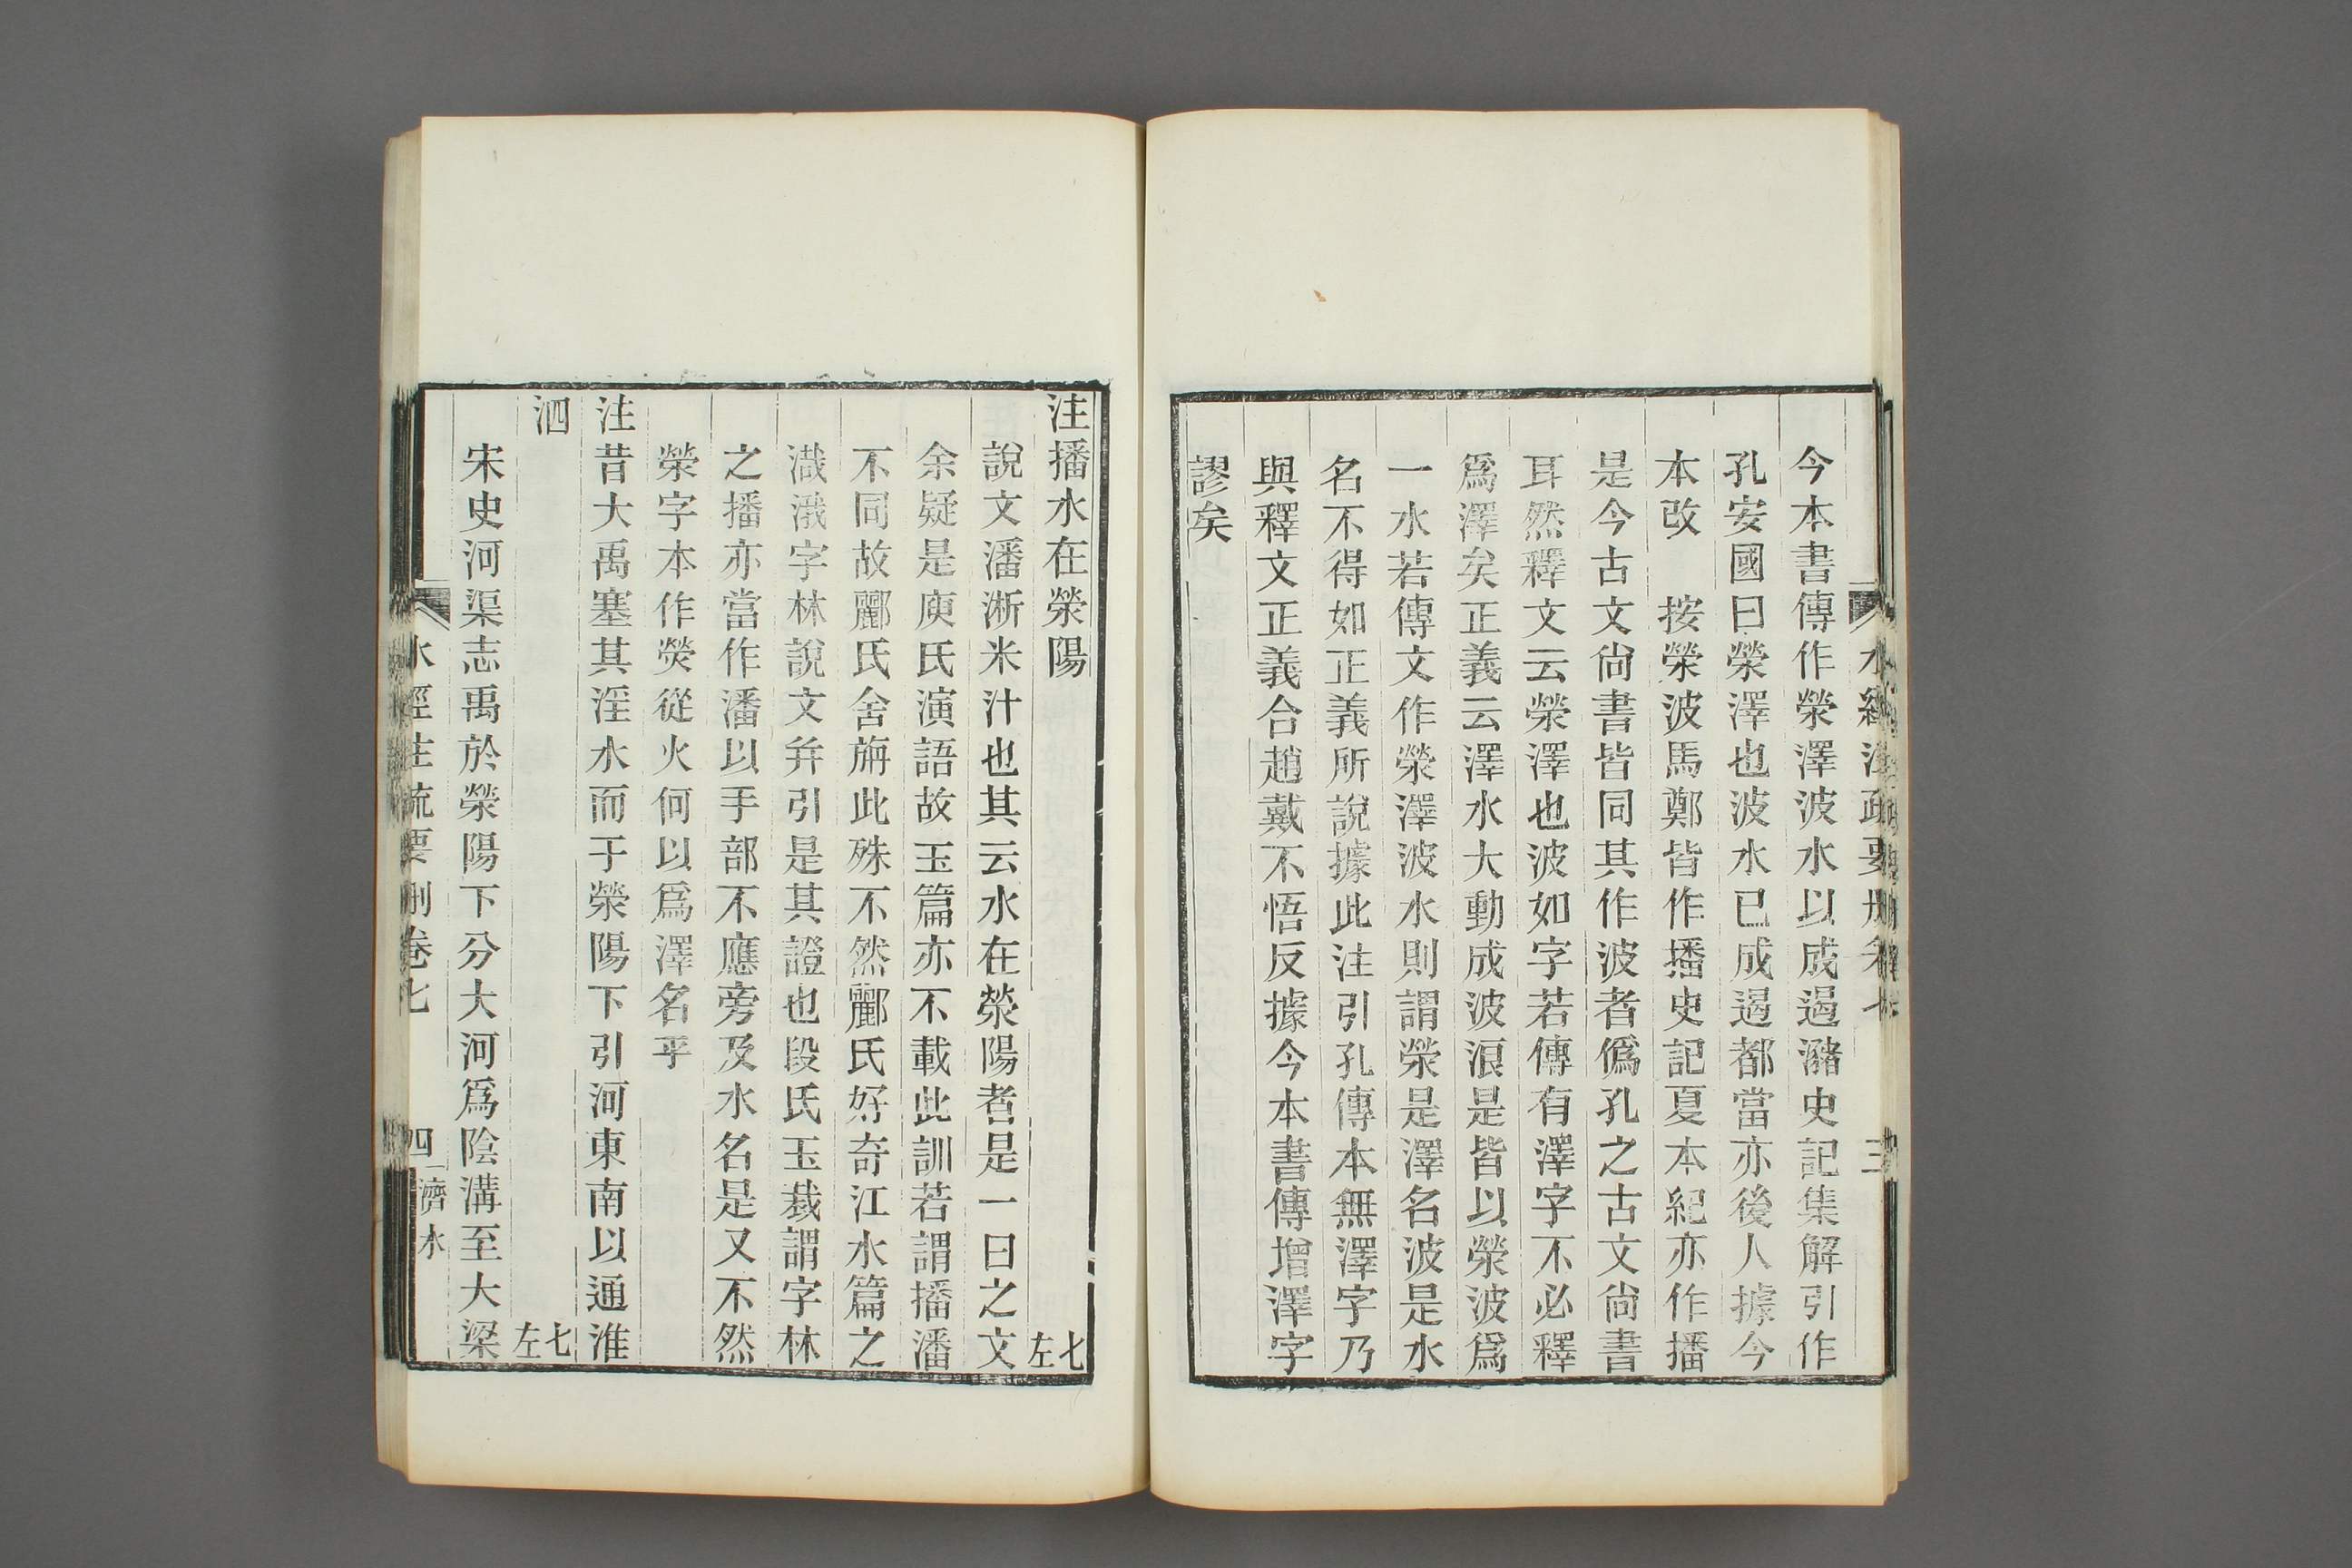 今本書傳作滎澤波水以成遏瀦史記集解引作
孔安國曰滎澤也波水已成遏都當亦後人據今
本改　按滎波馬鄭皆作播史記夏本紀亦作播
是今古文尙書皆同其作波者僞孔之古文尙書
耳然釋文云滎澤也波如字若傳有澤字不必釋
爲澤矣正義云澤水大動成波浪是皆以滎波爲
一水若傳文作滎澤波水則謂滎是澤名波是水
名不得如正義所說據此注引孔傳本無澤字乃
與釋文正義合趙戴不悟反據今本書傳增澤字
謬矣
注播水在滎陽　七左
說文潘淅米汁也其云水在滎陽者是一曰之文
余疑是庾氏演語故玉篇亦不載此訓若謂播潘
不同故酈氏舍旃此殊不然酈氏好奇江水篇之
濈濈字林說文弁引是其證也段氏玉裁謂字林
之播亦當作潘以手部不應旁及水名是又不然
滎字本作熒從火何以爲澤名乎
注昔大禹塞其淫水而于滎陽下引河東南以通淮
泗　七左
宋史河渠志禹於滎陽下分大河爲陰溝至大梁
水經注疏要刪卷七　四　濟水